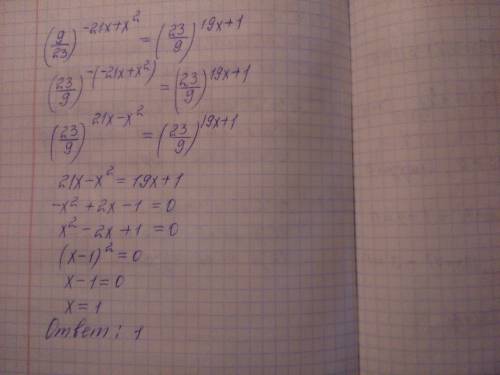 (9/23)^(-21x+x²) = (23/9)^(19x+1)
(23/9)^(-(-21x+x²)) = (23/9)^(19x+1)
(23/9)^(21x-x²) = (23/9)^(19x+1)
21x-x² = 19x+1
-x²+2x-1=0
x²-2x+1=0
(x-1)²=0
x-1=0
x=1
Ответ: 1